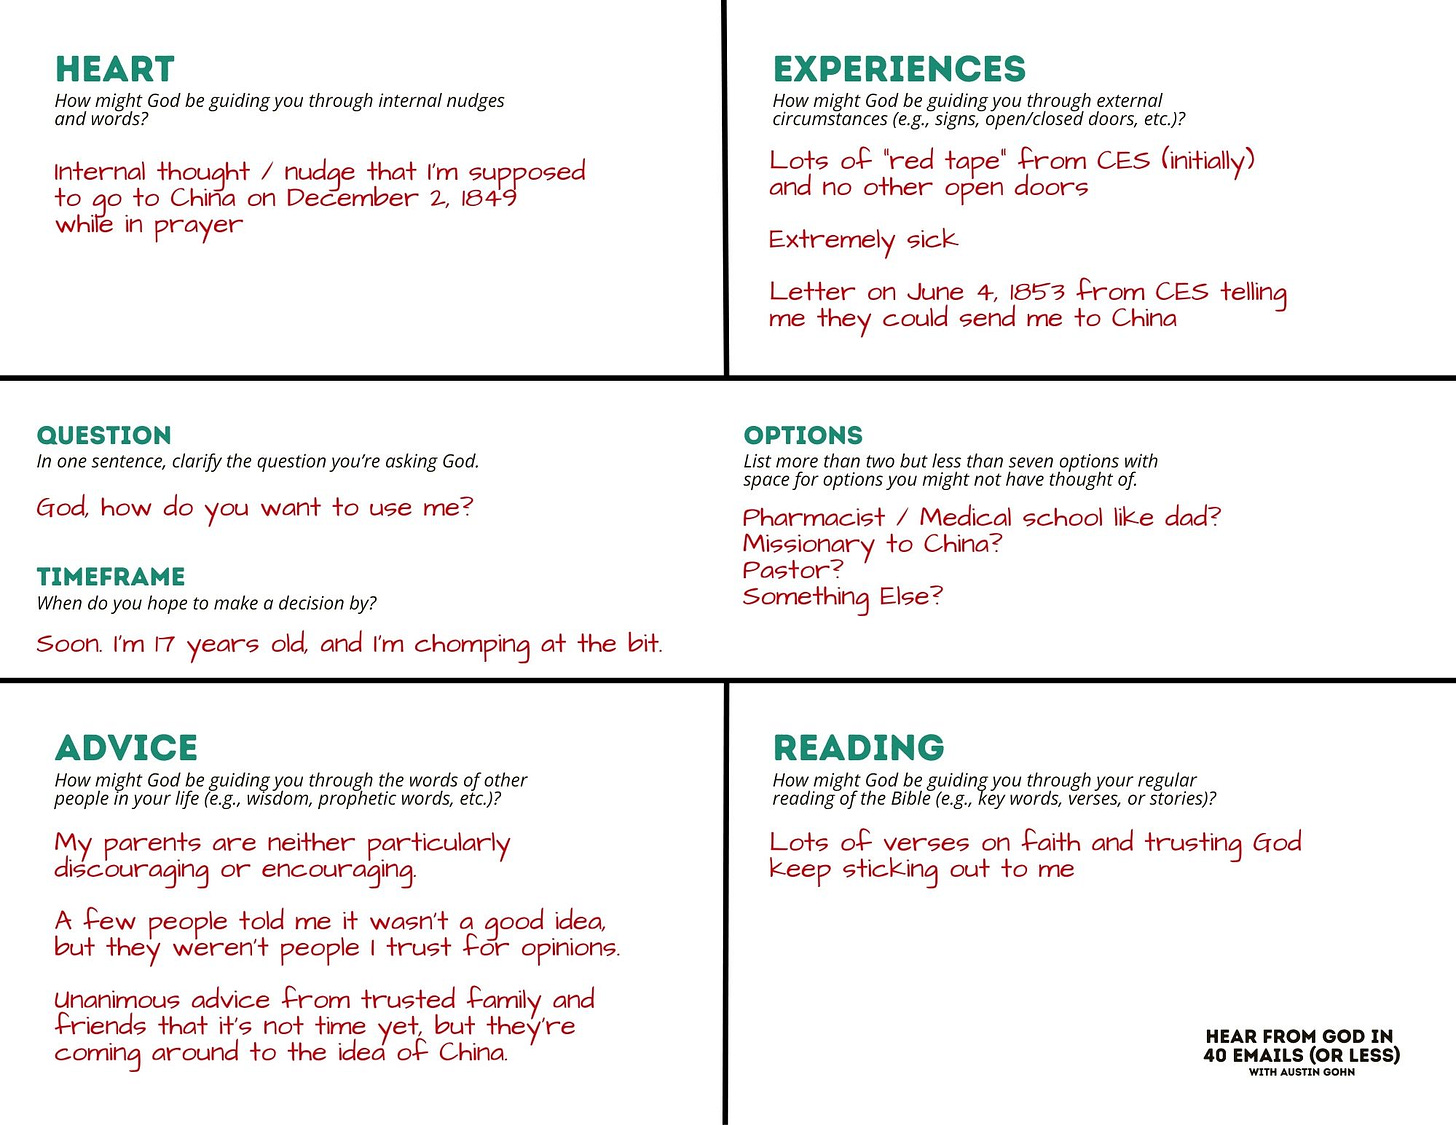 HEART
How might God be guiding you through internal nudges
and words?
Internal thought / nudge that I'm supposed
to go to China on December 2, 1849
while in prayer
EXPERIENCES
How might God be guiding you through external
circumstances (e.g., signs, open/closed doors, etc.)?
Lots of "red tape" from CES (initially)
and no other open doors
Extremely sick
Letter on June 4, 1853 from CES telling
me they could send me to China
QUESTION
In one sentence, clarify the question you're asking God.
God, how do you want to use me?
TIMEFRAME
When do you hope to make a decision by?
Soon. I'm 17 years old, and I'm chomping at the bit.
OPTIONS
List more than two but less than seven options with
space for options you might not have thought of.
Pharmacist / Medical school like dad?
Missionary to China?
Pastor?
Something Else?
ADVICE
How might God be guiding you through the words of other
people in your life (e.g., wisdom, prophetic words, etc.)?
My parents are neither particularly
discouraging or encouraging.
A few people told me it wasn't a good idea,
but they weren't people I trust for opinions.
Unanimous advice from trusted family and
friends that it's not time yet, but they're
coming around to the idea of China.
READING
How might God be guiding you through your regular
reading of the Bible (e.g., key words, verses, or stories)?
Lots of verses on faith and trusting God
keep sticking out to me
HEAR FROM GOD IN
40 EMAILS (OR LESS)
WITH AUSTIN GOHN